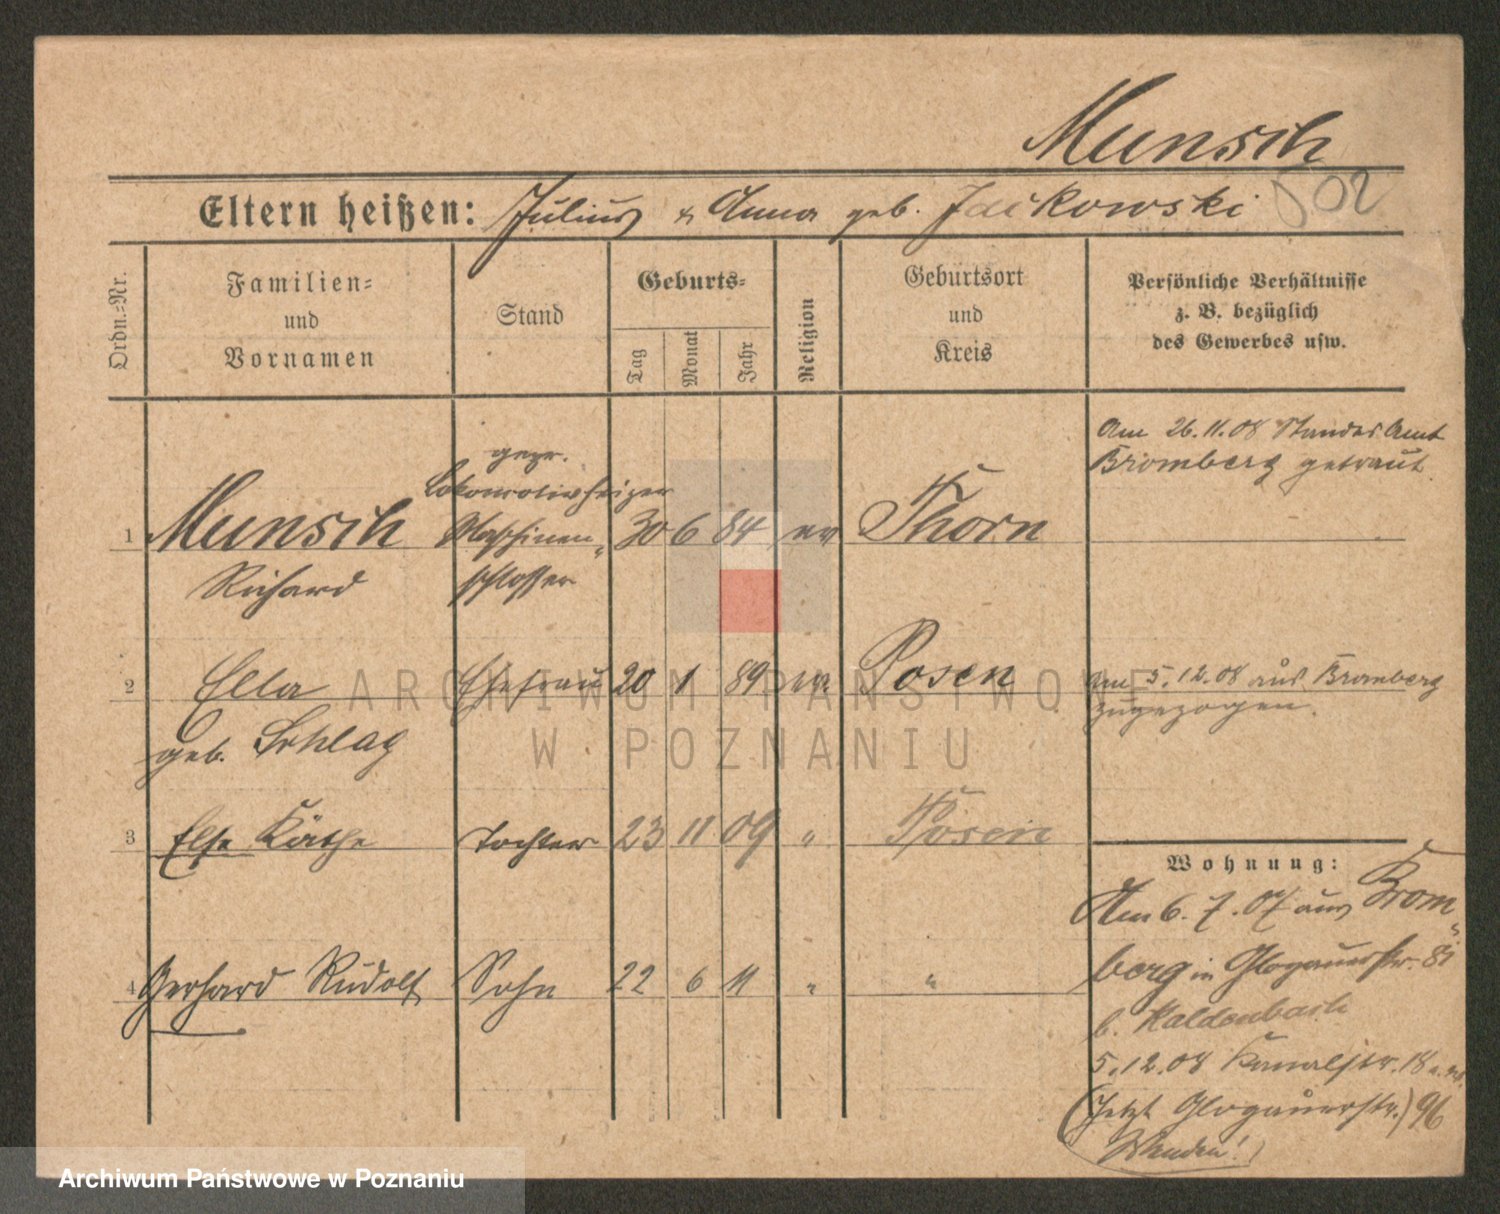 Munsch
Eltern heißen: Julius & Anna geb. Jaikowski 502
Ordn.=Nr.
Familien=
und
Vornamen
Stand
Geburts=
Tag
Monat
Jahr
Religion
Geburtsort
und
Kreis
Persönliche Verhältnisse
z. B. bezüglich
des Gewerbes usw.
Am 26.11.08 Standes Amt
Bromberg getraut.
gepr.
Lokomotivheizer
1 Munsch Maschinen= 30 6 84 ev Thorn
Richard schlosser
2 Ella Ehefrau 20 1 89 ev. Posen
am 5.12.08 aus Bromberg
zugezogen.
geb. Schlag
3 Else Käthe Tochter 23 11 09 " Posen
Wohnung:
Am 6. 7. 07 aus Brom=
4 Gerhard Rudolf Sohn 22 6 11 " "
berg in Glogauerstr. 81
b. Kaldenbach
5.12.08 Kanalstr. 18
(Jetzt Glogauerstr.) 96
Wenden!
ARCHIWUM PAŃSTWOWE
W POZNANIU
Archiwum Państwowe w Poznaniu